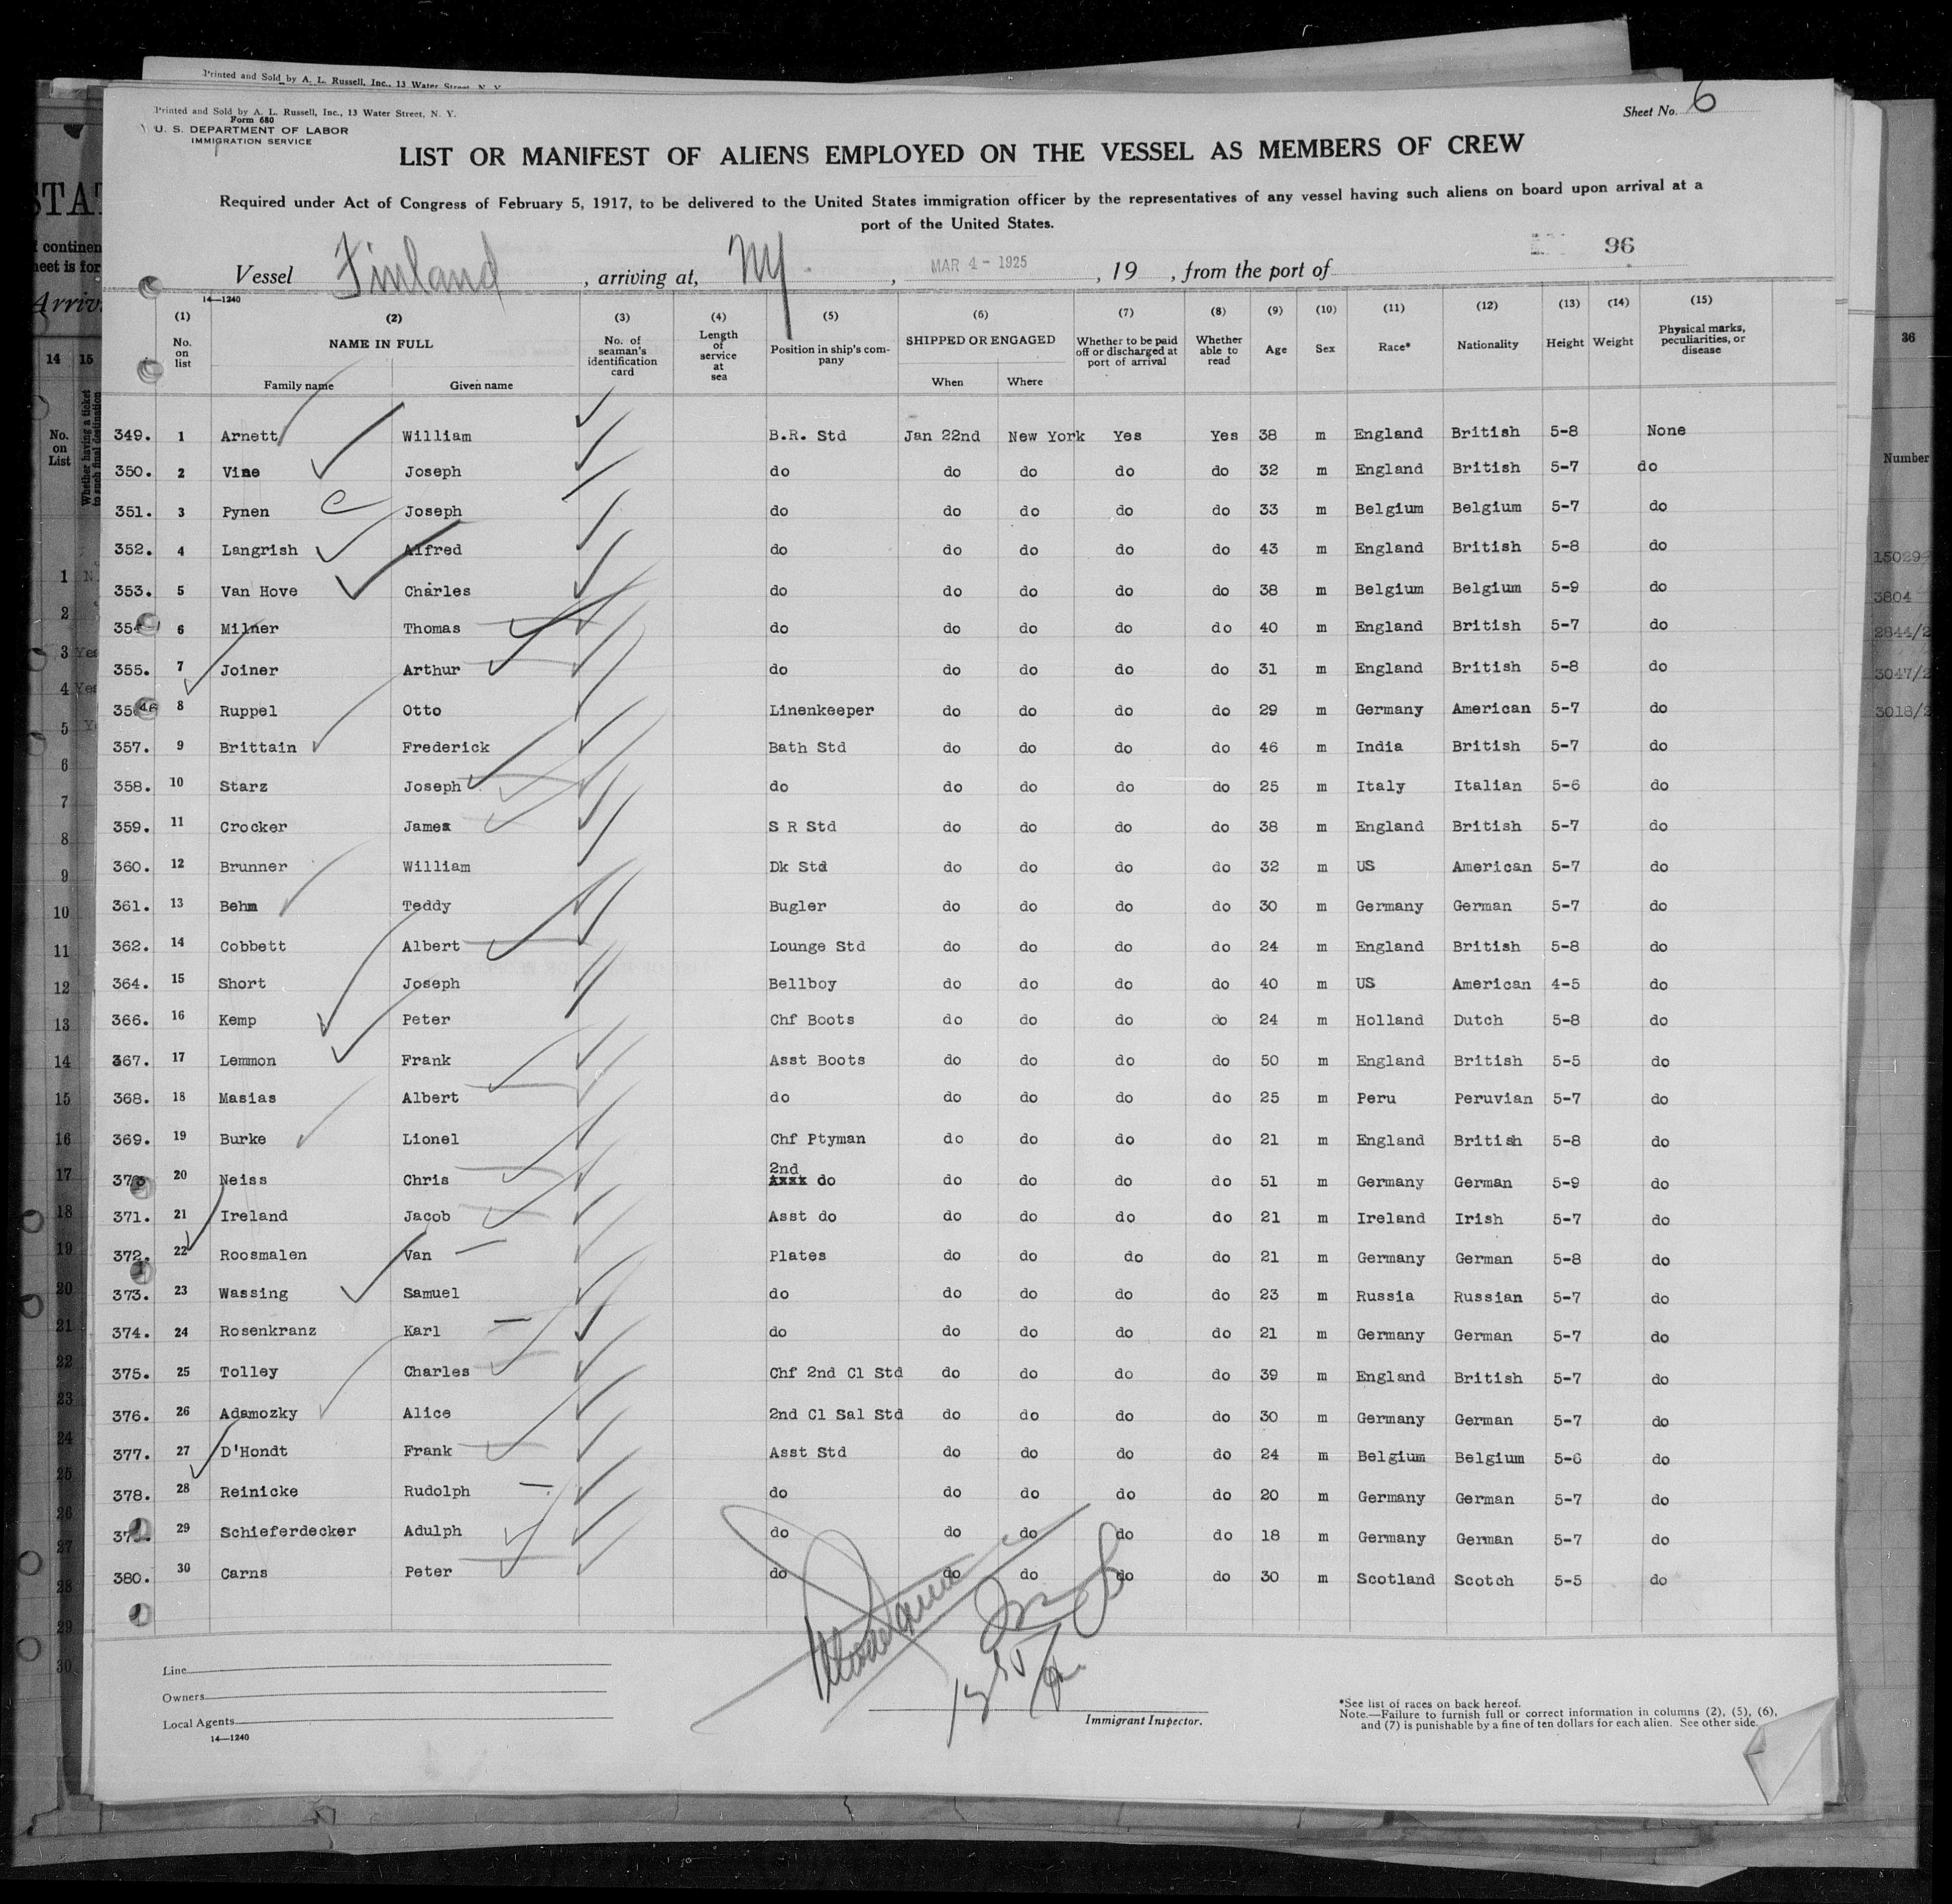 Printed and Sold by A. L. Russell, Inc., 13 Water Street, N. Y.
Printed and Sold by A. L. Russell, Inc., 13 Water Street, N. Y.
Form 680
U. S. DEPARTMENT OF LABOR
IMMIGRATION SERVICE
Sheet No. 6
LIST OR MANIFEST OF ALIENS EMPLOYED ON THE VESSEL AS MEMBERS OF CREW
Required under Act of Congress of February 5, 1917, to be delivered to the United States immigration officer by the representatives of any vessel having such aliens on board upon arrival at a
port of the United States.
96
Vessel Finland , arriving at, NY , MAR 4 - 1925 , 19 , from the port of
14—1240
(1) (2) (3) (4) (5) (6) (7) (8) (9) (10) (11) (12) (13) (14) (15)
No. on list NAME IN FULL No. of seaman's identification card Length of service at sea Position in ship's company SHIPPED OR ENGAGED Whether to be paid off or discharged at port of arrival Whether able to read Age Sex Race* Nationality Height Weight Physical marks, peculiarities, or disease
Family name Given name When Where
349. 1 Arnett William B.R. Std Jan 22nd New York Yes Yes 38 m England British 5-8 None
350. 2 Vine Joseph do do do do do 32 m England British 5-7 do
351. 3 Pynen Joseph do do do do do 33 m Belgium Belgium 5-7 do
352. 4 Langrish Alfred do do do do do 43 m England British 5-8 do
353. 5 Van Hove Charles do do do do do 38 m Belgium Belgium 5-9 do
354 6 Milner Thomas do do do do do 40 m England British 5-7 do
355. 7 Joiner Arthur do do do do do 31 m England British 5-8 do
356 8 Ruppel Otto Linenkeeper do do do do 29 m Germany American 5-7 do
357. 9 Brittain Frederick Bath Std do do do do 46 m India British 5-7 do
358. 10 Starz Joseph do do do do do 25 m Italy Italian 5-6 do
359. 11 Crocker James S R Std do do do do 38 m England British 5-7 do
360. 12 Brunner William Dk Std do do do do 32 m US American 5-7 do
361. 13 Behm Teddy Bugler do do do do 30 m Germany German 5-7 do
362. 14 Cobbett Albert Lounge Std do do do do 24 m England British 5-8 do
364. 15 Short Joseph Bellboy do do do do 40 m US American 4-5 do
366. 16 Kemp Peter Chf Boots do do do do 24 m Holland Dutch 5-8 do
367. 17 Lemmon Frank Asst Boots do do do do 50 m England British 5-5 do
368. 18 Masias Albert do do do do do 25 m Peru Peruvian 5-7 do
369. 19 Burke Lionel Chf Ptyman do do do do 21 m England British 5-8 do
370 20 Neiss Chris 2nd do do do do do 51 m Germany German 5-9 do
371. 21 Ireland Jacob Asst do do do do do 21 m Ireland Irish 5-7 do
372. 22 Roosmalen Van Plates do do do do 21 m Germany German 5-8 do
373. 23 Wassing Samuel do do do do do 23 m Russia Russian 5-7 do
374. 24 Rosenkranz Karl do do do do do 21 m Germany German 5-7 do
375. 25 Tolley Charles Chf 2nd Cl Std do do do do 39 m England British 5-7 do
376. 26 Adamozky Alice 2nd Cl Sal Std do do do do 30 m Germany German 5-7 do
377. 27 D'Hondt Frank Asst Std do do do do 24 m Belgium Belgium 5-6 do
378. 28 Reinicke Rudolph do do do do do 20 m Germany German 5-7 do
379. 29 Schieferdecker Adulph do do do do do 18 m Germany German 5-7 do
380. 30 Carns Peter do do do do do 30 m Scotland Scotch 5-5 do
Line
Owners
Local Agents
14—1240
Immigrant Inspector.
*See list of races on back hereof.
Note.—Failure to furnish full or correct information in columns (2), (5), (6),
and (7) is punishable by a fine of ten dollars for each alien. See other side.